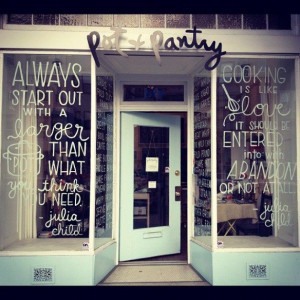 Pot + Pantry
ALWAYS
START OUT
WITH A
larger
POT
THAN
WHAT
you think
YOU NEED.
-julia
child.
COOKING
IS LIKE
love
IT SHOULD BE
ENTERED
into with
ABANDON
OR NOT AT ALL.
-julia
child